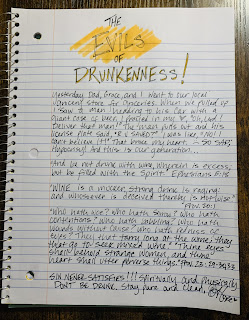 THE
EVILS
OF
DRUNKENNESS!
Yesterday Dad, Grace, and I went to our local
convenient store for groceries. When we pulled up
I saw a man heading to his car with a
giant case of beer. I prayed in my ♥, "Oh, Lord!
Deliver that man!" The man pulls out and his
license plate said, "R U SAVED?" I was like, "NO! I
can't believe it!" That broke my heart. - SO SAD!
Playboys! And this is our generation.
"And be not drunk with wine, wherein is excess;
but be filled with the Spirit." Ephesians 5:18
"WINE is a mocker, strong drink is raging:
and whosoever is deceived thereby is not wise."
"Who hath woe? who hath sorrow? who hath
contentions? who hath babbling? who hath
wounds without cause? who hath redness of
eyes? They that tarry long at the wine; they
that go to seek mixed wine." "Thine eyes
shall behold strange women, and thine
heart shall utter perverse things." Prov. 23:29-30,33
SIN NEVER SATISFIES!!! Spiritually and physically
DON'T BE DRUNK. Stay pure and clean,